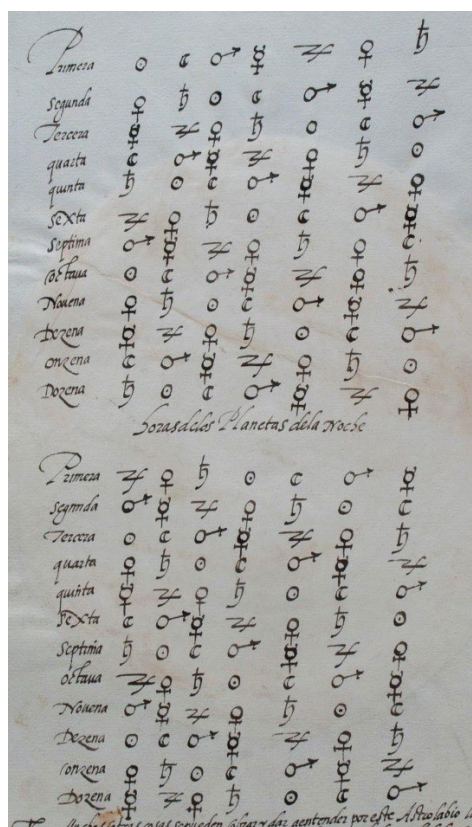 Primera ☉ ☾ ♂ ☿ ♃ ♀ ♄
segunda ♀ ♄ ☉ ☾ ♂ ☿ ♃
Tercera ☿ ♃ ♀ ♄ ☉ ☾ ♂
quarta ☾ ♂ ☿ ♃ ♀ ♄ ☉
quinta ♄ ☉ ☾ ♂ ☿ ♃ ♀
sexta ♃ ♀ ♄ ☉ ☾ ♂ ☿
septima ♂ ☿ ♃ ♀ ♄ ☉ ☾
octaua ☉ ☾ ♂ ☿ ♃ ♀ ♄
Nouena ♀ ♄ ☉ ☾ ♂ ☿ ♃
Dezena ☿ ♃ ♀ ♄ ☉ ☾ ♂
onzena ☾ ♂ ☿ ♃ ♀ ♄ ☉
Dozena ♄ ☉ ☾ ♂ ☿ ♃ ♀
horas delos Planetas dela Noche
Primera ♃ ♀ ♄ ☉ ☾ ♂ ☿
segunda ♂ ☿ ♃ ♀ ♄ ☉ ☾
Tercera ☉ ☾ ♂ ☿ ♃ ♀ ♄
quarta ♀ ♄ ☉ ☾ ♂ ☿ ♃
quinta ☿ ♃ ♀ ♄ ☉ ☾ ♂
sexta ☾ ♂ ☿ ♃ ♀ ♄ ☉
septima ♄ ☉ ☾ ♂ ☿ ♃ ♀
octaua ♃ ♀ ♄ ☉ ☾ ♂ ☿
Nouena ♂ ☿ ♃ ♀ ♄ ☉ ☾
Dezena ☉ ☾ ♂ ☿ ♃ ♀ ♄
onzena ♀ ♄ ☉ ☾ ♂ ☿ ♃
Dozena ☿ ♃ ♀ ♄ ☉ ☾ ♂
otras cosas se pueden y dar a entender por este Astrolabio